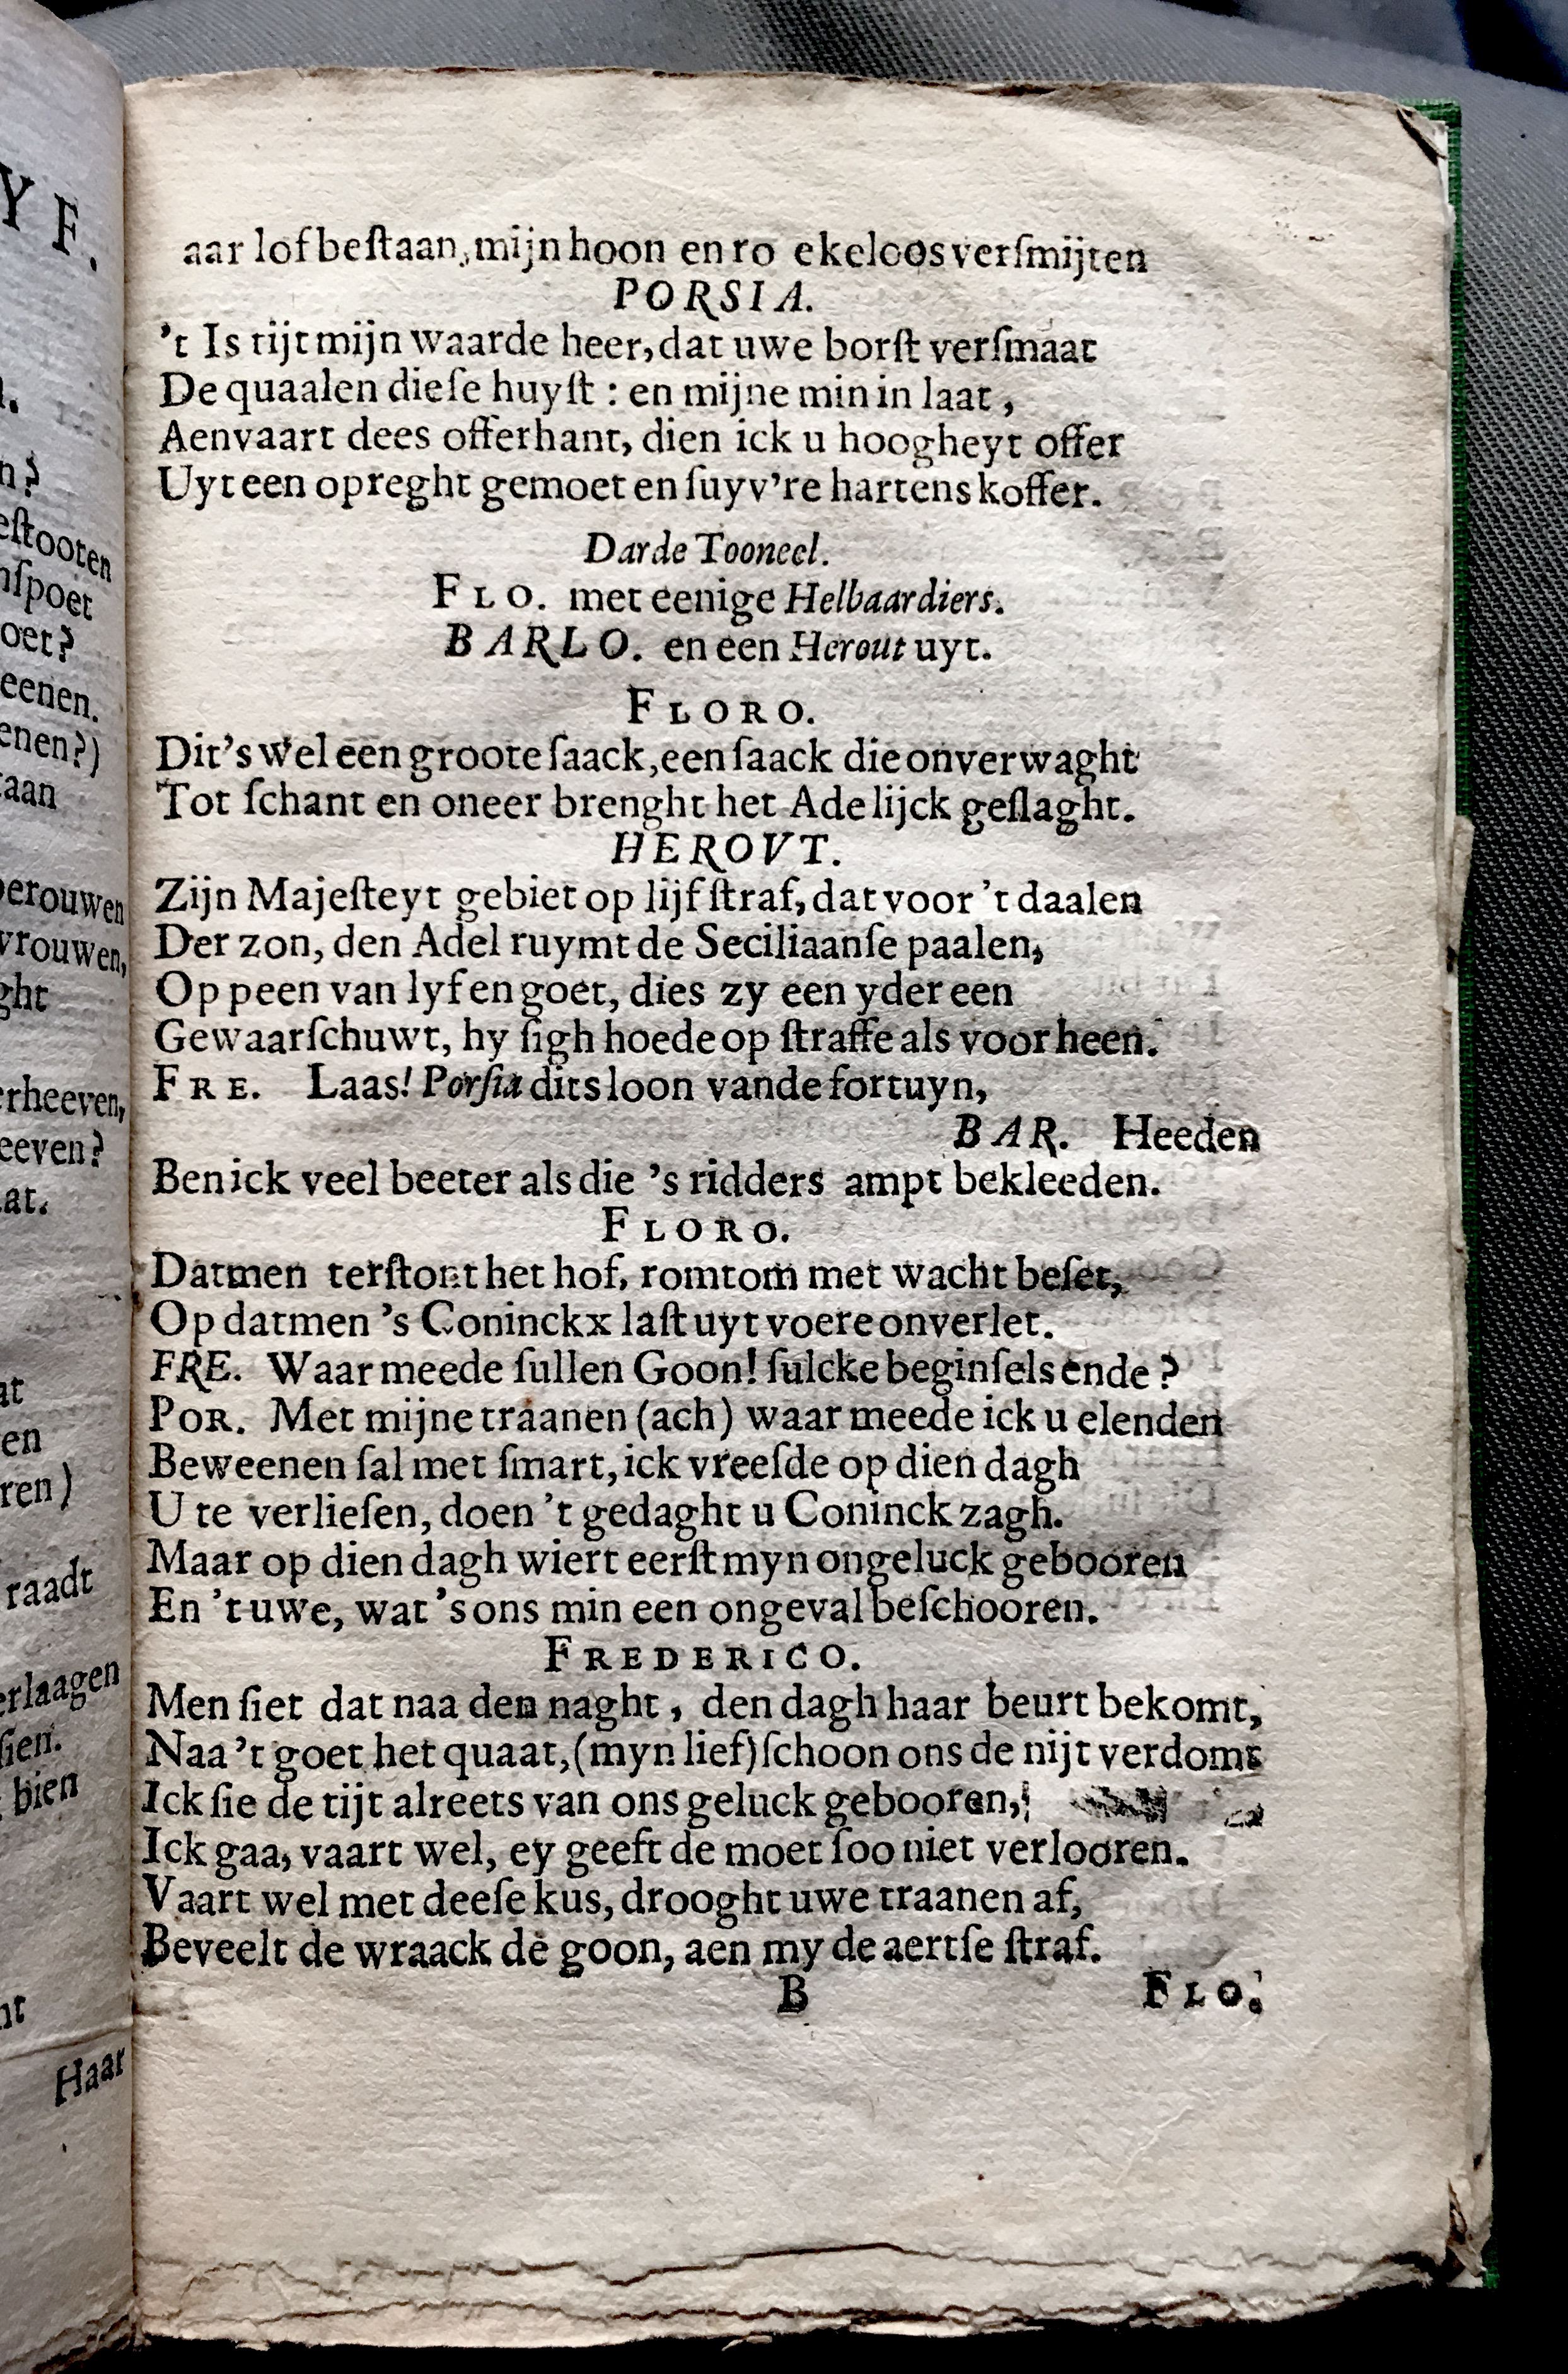 aar lof bestaan, mijn hoon en ro ekeloos verſmijten
PORSIA.
't Is tijt mijn waarde heer, dat uwe borſt verſmaat
De quaalen dieſe huyſt : en mijne min in laat,
Aenvaart dees offerhant, dien ick u hoogheyt offer
Uyt een opreght gemoet en ſuyv're hartens koffer.
Darde Tooneel.
FLO. met eenige Helbaardiers.
BARLO. en een Herout uyt.
FLORO.
Dit's wel een groote ſaack, een ſaack die onverwaght
Tot ſchant en oneer brenght het Adelijck geſlaght.
HEROVT.
Zijn Majeſteyt gebiet op lijf ſtraf, dat voor 't daalen
Der zon, den Adel ruymt de Seciliaanſe paalen,
Op peen van lyf en goet, dies zy een yder een
Gewaarſchuwt, hy ſigh hoede op ſtraffe als voor heen.
FRE. Laas! Porſia dits loon vande fortuyn,
BAR. Heeden
Ben ick veel beeter als die 's ridders ampt bekleeden.
FLORO.
Datmen terſtont het hof, romtom met wacht beſet,
Op datmen 's Coninckx laſt uyt voere onverlet.
FRE. Waar meede ſullen Goon! ſulcke beginſels ende?
POR. Met mijne traanen (ach) waar meede ick u elenden
Beweenen ſal met ſmart, ick vreeſde op dien dagh
U te verlieſen, doen 't gedaght u Coninck zagh.
Maar op dien dagh wiert eerſt myn ongeluck gebooren
En 't uwe, wat 's ons min een ongeval beſchooren.
FREDERICO.
Men ſiet dat naa den naght, den dagh haar beurt bekomt,
Naa 't goet het quaat, (myn lief) ſchoon ons de nijt verdomt
Ick ſie de tijt alreets van ons geluck gebooren,
Ick gaa, vaart wel, ey geeft de moet ſoo niet verlooren.
Vaart wel met deeſe kus, drooght uwe traanen af,
Beveelt de wraack de goon, aen my de aertſe ſtraf.
B FLO.